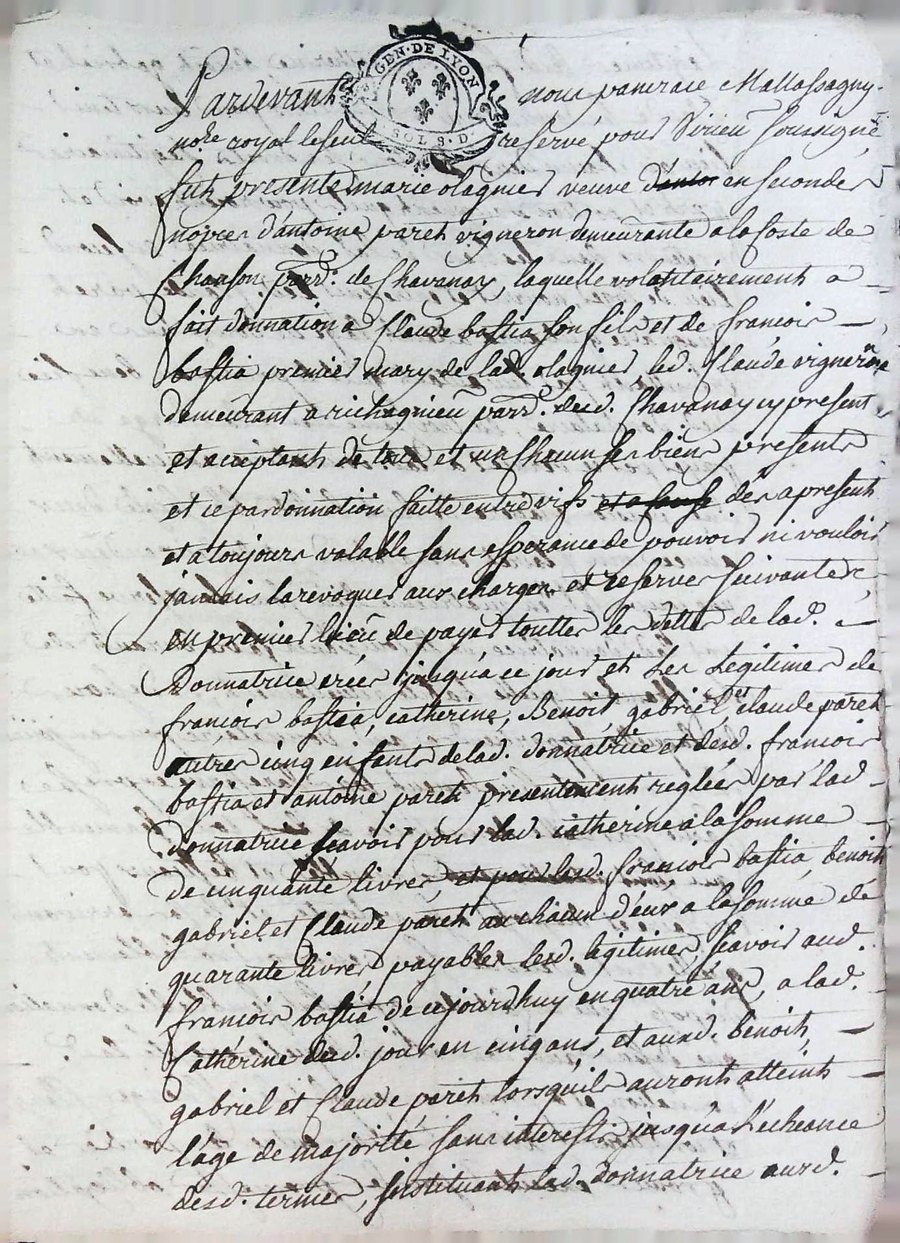 GEN. DE LYON
SOLS. D
Pardevant nous pancrace Mallassagny
nore royal le seul reservé pour Virieu soussigné
fut presente marie olagnier veuve d'antoi en secondes
nopces d'antoine paret vigneron demeurante a la Coste de
Chanson parr. de Chavanay, laquelle volontairement a
fait donnation a Claude bastia son fils et de francois
bastia premier mary de lad. olagnier, led. Claude vigneron
demeurant a richagnieu parr. dud. Chavanay cy present
et acceptant de tous et un chacun ses biens presents
et ce par donnation faitte entre vifs et a cause des apresent
et a toujours valable sans esperance de pouvoir ni vouloir
jamais la revoquer aux charges et reserves suivantes
en premier lieu de payer touttes les dettes de lad.
Donnatrice crées jusqu'a ce jour et les Legitimes de
françois bastia, catherine, Benoit, gabriel, et claude paret
autres cinq enfants de lad. donnatrice et desd. francois
bastia et antoine paret presentement reglées par lad.
donnatrice scavoir pour lad. catherine a la somme
de cinquante livres, et pour lesd. francois bastia, benoit
gabriel et Claude paret a chacun d'eux a la somme de
quarante livres payables lesd. legitimes scavoir aud.
francois bastia de ce jourdhuy en quatre ans, a lad.
Catherine dud. jour en cinq ans, et auxd. benoit,
gabriel et Claude paret lorsquils auront atteint
l'age de majorité sans interests jusqu'a l'echeance
desd. termes, instituant lad. donnatrice auxd.